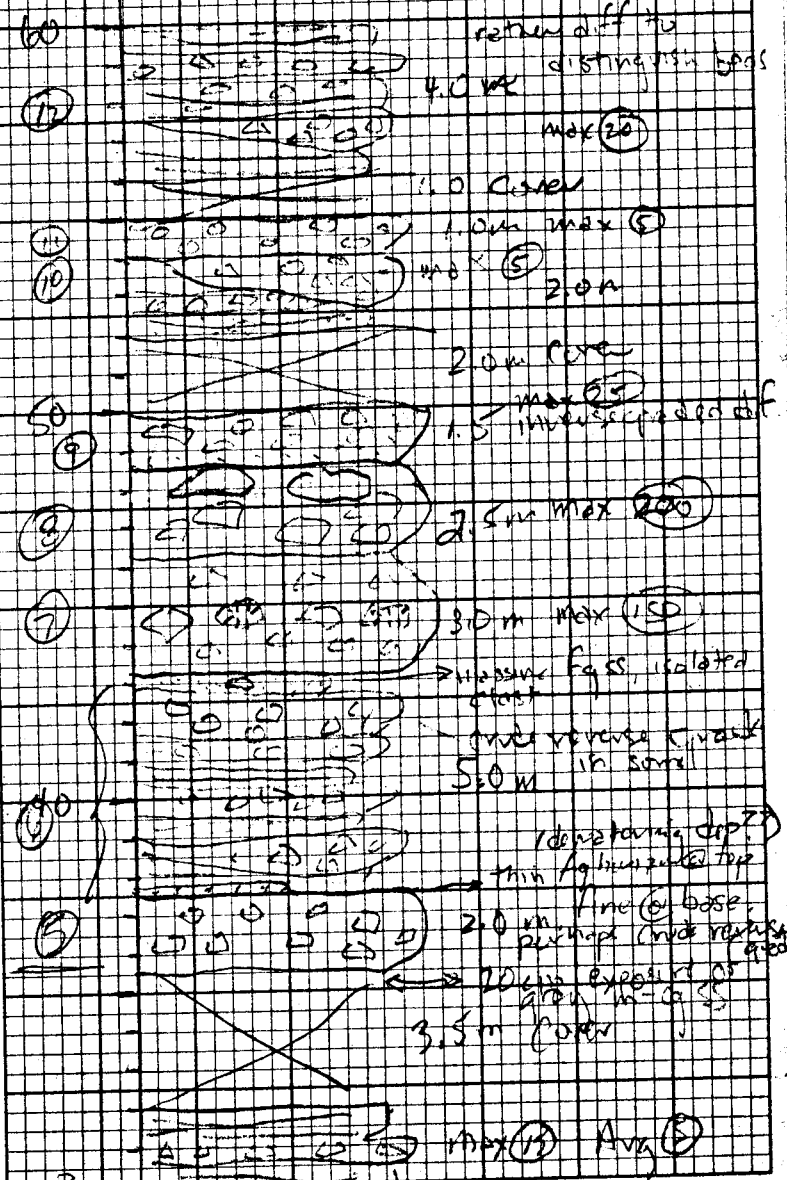 60
rather diff to
distinguish beds
4.0 m
12
max 20
1.0 Cover
11
1.0m max 5
10
max 5
2.0 m
2.0m Cover
50
max 25
1.5 inverse graded
9
8
2.5m max 200
7
3.0 m max 150
massive fg ss, isolated
clast
crude reverse
in some
5.0 m
40
6
(dewatering dep??)
thin fg @ top
fine @ base.
5
2.0 m perhaps crude reverse
20 cm exposure of
grey m-cg ss
3.5 m Cover
max Avg